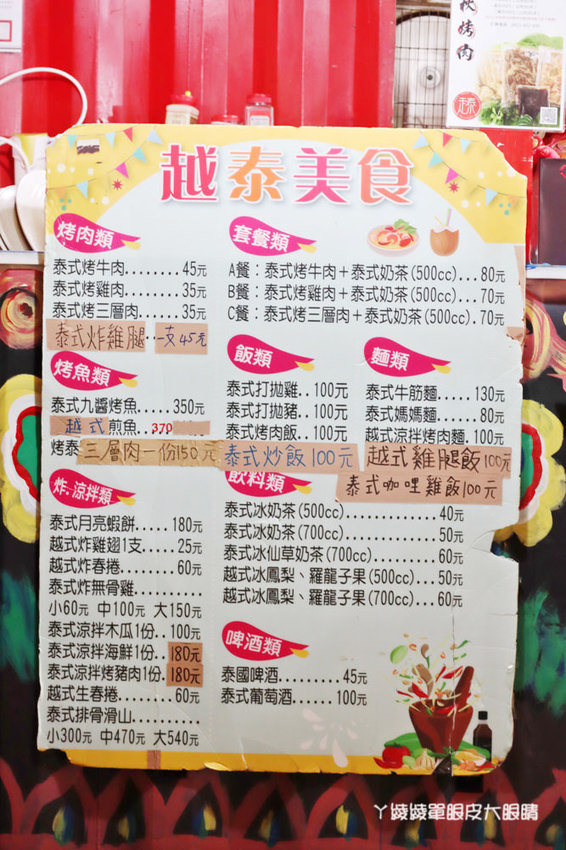 秋烤肉
越泰美食
烤肉類
泰式烤牛肉........45元
泰式烤雞肉........35元
泰式烤三層肉......35元
泰式炸雞腿..一支45元
烤魚類
泰式九醬烤魚.....350元
越式煎魚..370
烤泰三層肉一份150元
炸.涼拌類
泰式月亮蝦餅.....180元
越式炸雞翅1支.....25元
越式炸春捲........60元
泰式炸無骨雞..........
小60元 中100元 大150元
泰式涼拌木瓜1份..100元
泰式涼拌海鮮1份..180元
泰式涼拌烤豬肉1份.180元
越式生春捲........60元
泰式排骨滑山..........
小300元 中470元 大540元
套餐類
A餐：泰式烤牛肉＋泰式奶茶(500cc)...80元
B餐：泰式烤雞肉＋泰式奶茶(500cc)...70元
C餐：泰式烤三層肉＋泰式奶茶(500cc).70元
飯類
泰式打拋雞..100元
泰式打拋豬..100元
泰式烤肉飯..100元
泰式炒飯100元
麵類
泰式牛筋麵.....130元
泰式媽媽麵......80元
越式涼拌烤肉麵.100元
越式雞腿飯100元
泰式咖哩雞飯100元
飲料類
泰式冰奶茶(500cc)............40元
泰式冰奶茶(700cc)............50元
泰式冰仙草奶茶(700cc)........60元
越式冰鳳梨、羅龍子果(500cc)...50元
越式冰鳳梨、羅龍子果(700cc)...60元
啤酒類
泰國啤酒........45元
泰式葡萄酒......100元
ㄚ綾綾單眼皮大眼睛